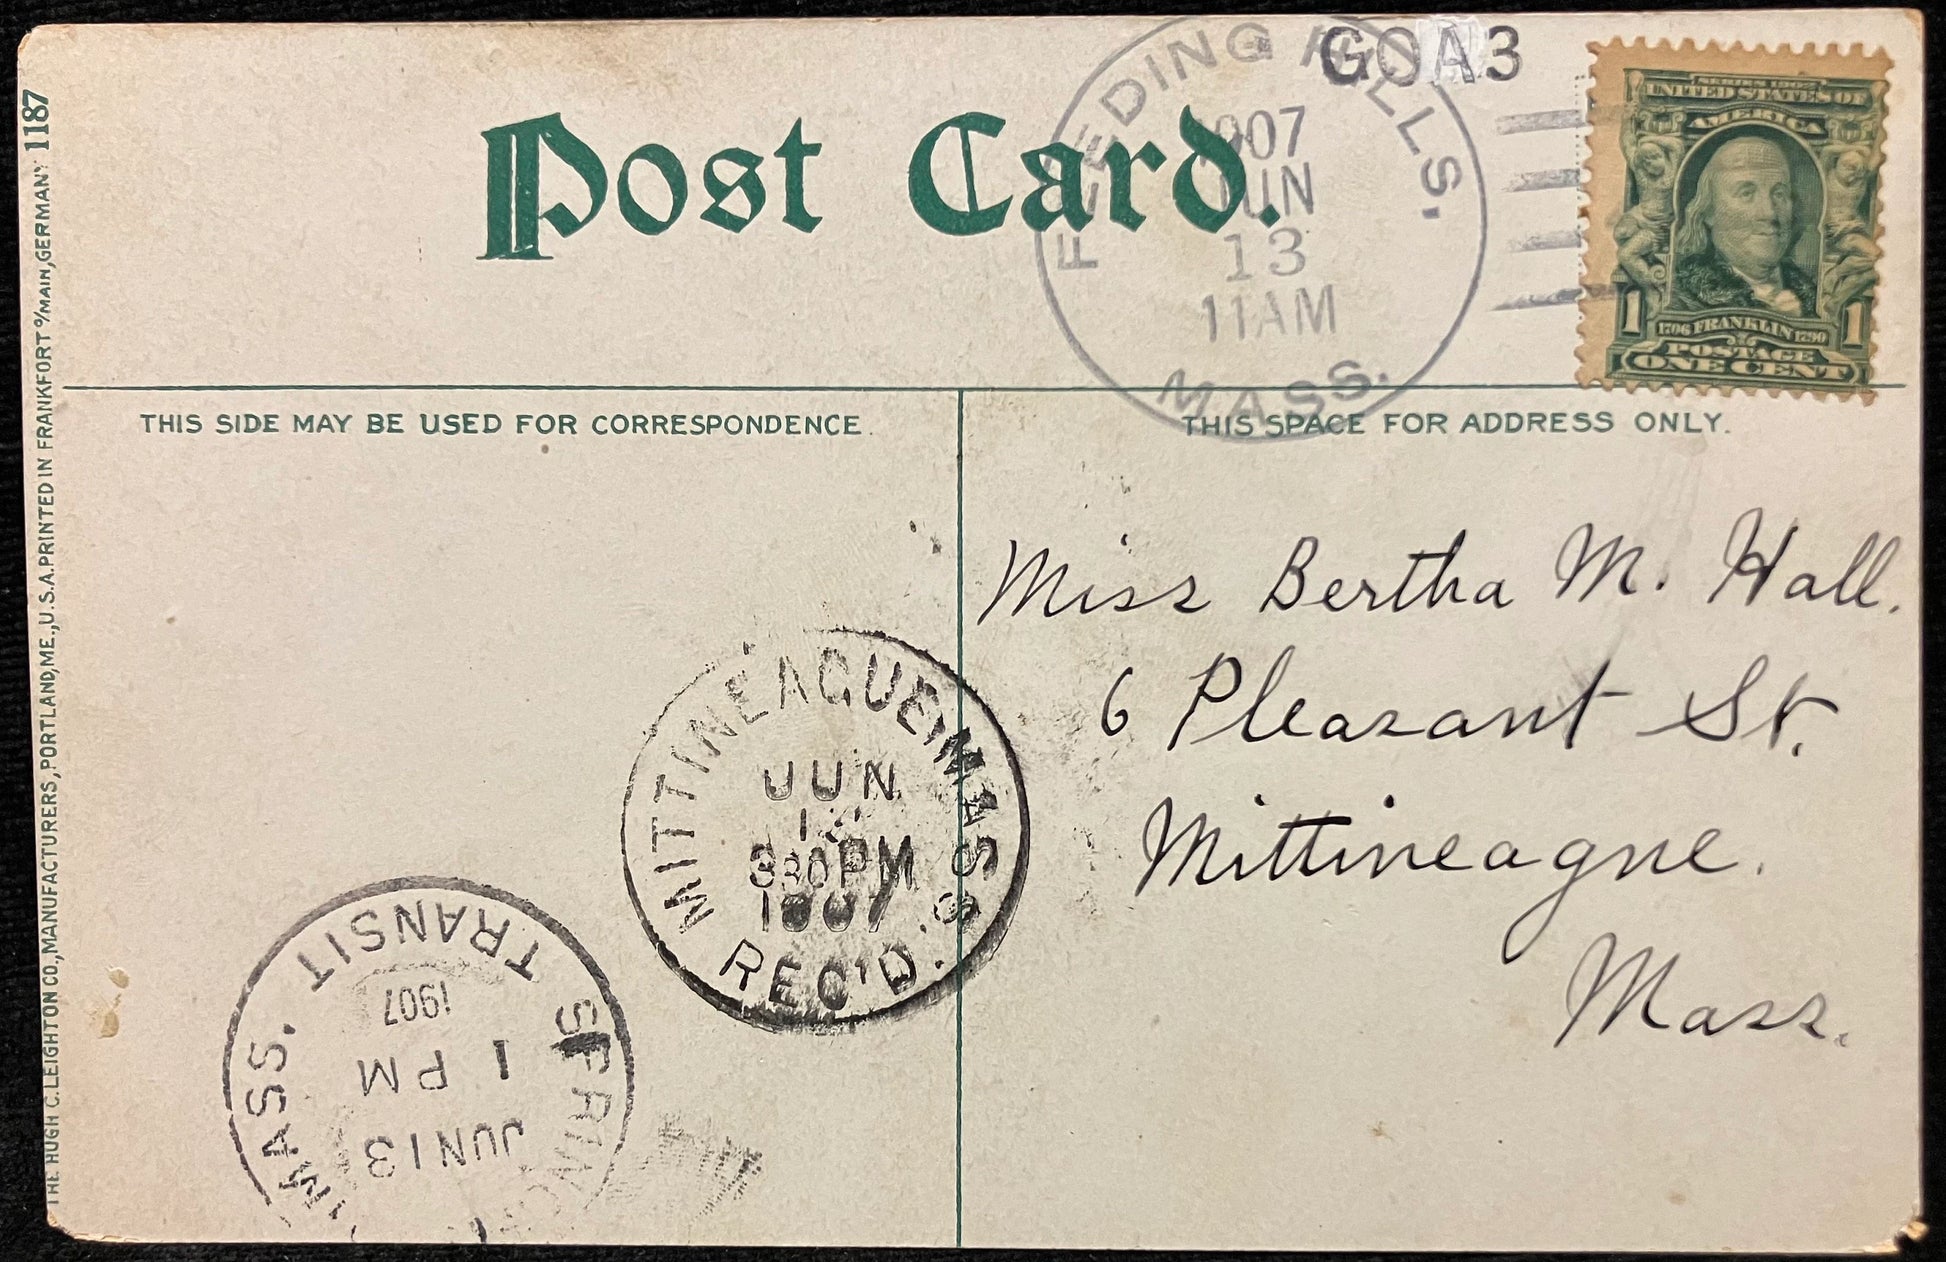 Post Card.
GOA3
FEEDING HILLS.
1907
JUN
13
11AM
MASS.
SERIES 1902
UNITED STATES OF
AMERICA
1 1
1706 FRANKLIN 1790
POSTAGE
ONE CENT
THIS SIDE MAY BE USED FOR CORRESPONDENCE.
THIS SPACE FOR ADDRESS ONLY.
Miss Bertha M. Hall.
6 Pleasant St.
Mittineague.
Mass.
MITTINEAGUE, MASS.
JUN
330PM
1907
REC'D.
MASS. TRANSIT
1907
1 PM
JUN 13
THE HUGH C. LEIGHTON CO., MANUFACTURERS, PORTLAND, ME., U.S.A. PRINTED IN FRANKFORT o/MAIN, GERMANY 1187